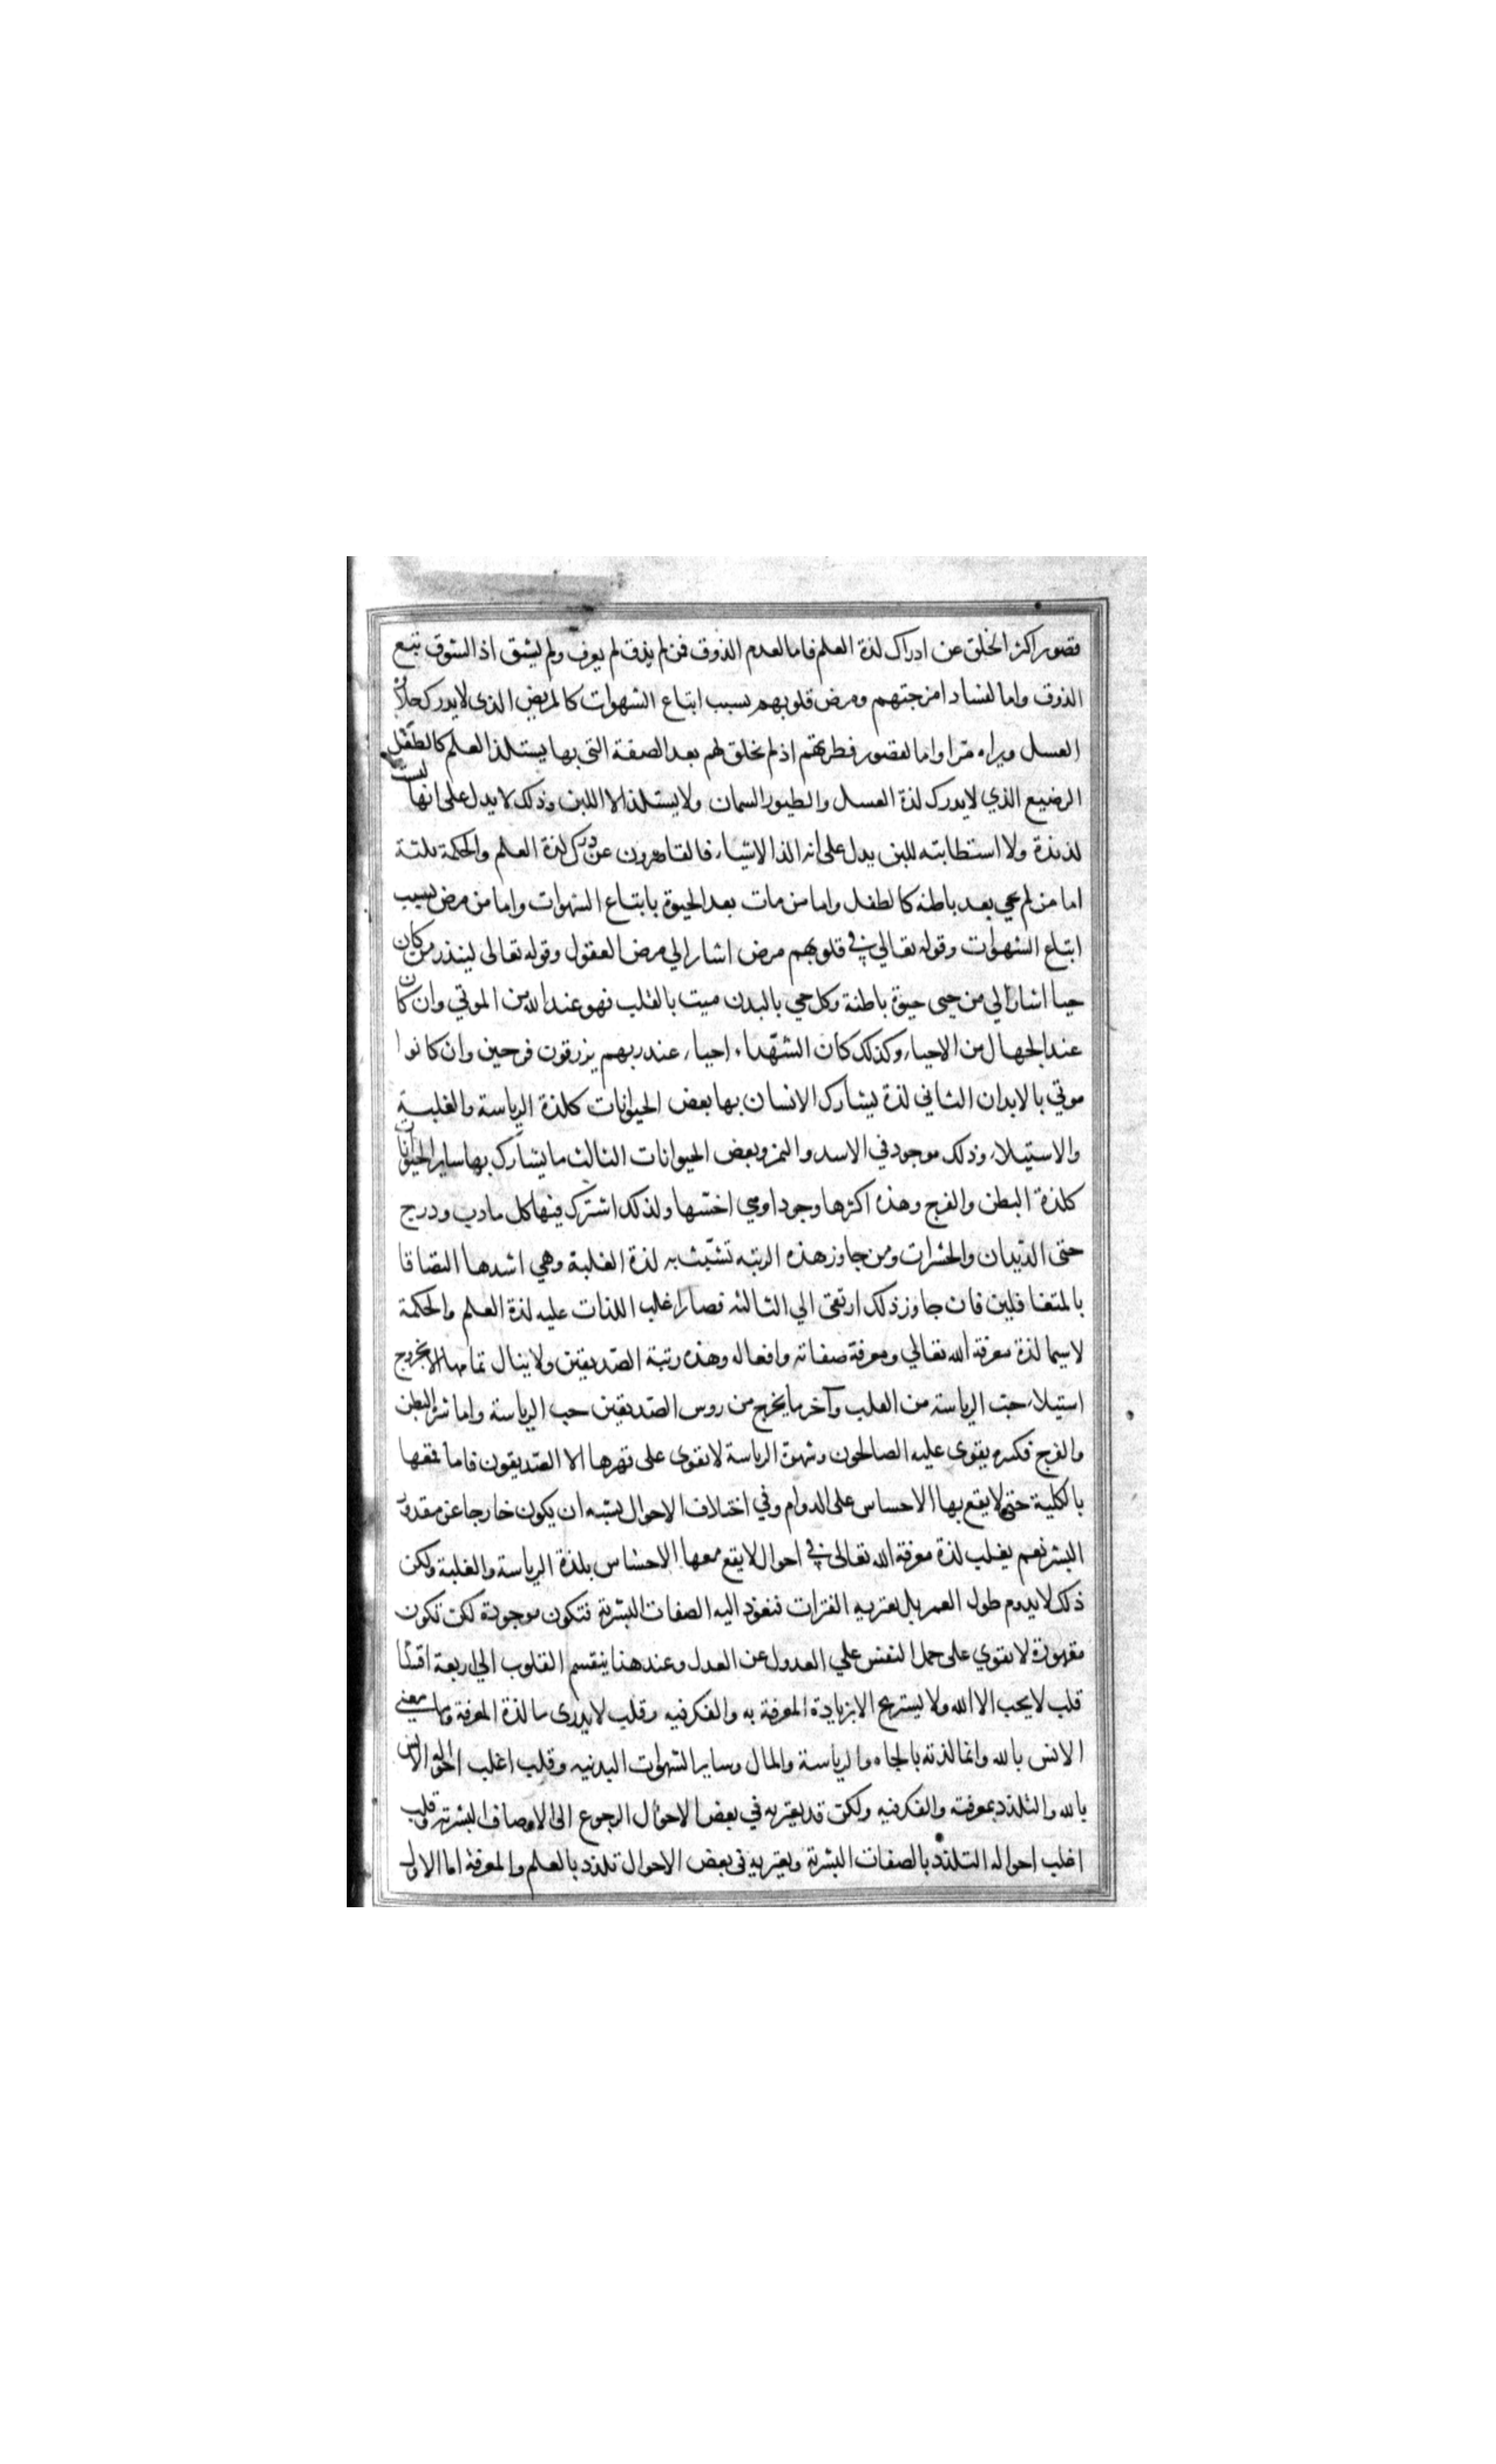 قصور اكثر الخلق عن ادراك لذة العلم فاما لعدم الذوق فمن لم يذق لم يعرف ولم يشق اذ الشوق تبع
الذوق واما لفساد امزجتهم ومرض قلوبهم بسبب اتباع الشهوات كالمريض الذى لا يدرك حلاوة
العسل ويراه مرّا واما لقصور فطرتهم اذ لم تخلق لهم بعد الصفة التى بها يستلذ العلم كالطفل
الرضيع الذي لا يدرك لذة العسل والطيور السمان ولا يستلذ الا اللبن وذلك لا يدل على انها ليست
لذيذة ولا استطابته للبن يدل على انه الذ الاشياء فالقاصرون عن درك لذة العلم والحكمة ثلثة
اما من لم يحي بعد باطنه كالطفل واما من مات بعد الحيوة باتباع الشهوات واما من مرض بسبب
اتباع الشهوات وقوله تعالي في قلوبهم مرض اشار الي مرض العقول وقوله تعالى لينذر من كان
حيا اشار الي من حيى حيوة باطنة وكل حي بالبدن ميت بالقلب فهو عند الله من الموتي وان كان
عند الجهال من الاحياء وكذلك كان الشهّداء احياء عند ربهم يرزقون فرحين وان كانوا
موتي بالابدان الثاني لذة يشارك الانسان بها بعض الحيوانات كلذة الرياسة والغلبة
والاستيلاء وذلك موجود في الاسد والنمر وبعض الحيوانات الثالث ما يشارك بها ساير الحيوانات
كلذة البطن والفرج وهذه اكثرها وجودا وهي اخسّها ولذلك اشترك فيها كل ما دب ودرج
حتى الدّيدان والحشرات ومن جاوز هذه الرتبه تشبّثت به لذة الغلبة وهي اشدها التصاقا
بالمتغافلين فان جاوز ذلك ارتقى الي الثالثه فصار اغلب اللذات عليه لذة العلم والحكمة
لاسيما لذة معرفة الله تعالي ومعرفة صفاته وافعاله وهذه رتبة الصّديقين ولا ينال تمامها الا بخروج
استيلاء حبّ الرياسة من القلب وآخر ما يخرج من روس الصّديقين حب الرياسة واما شره البطن
والفرج فكسره يقوى عليه الصالحون وشهوة الرياسة لا يقوى على قهرها الا الصّديقون فاما قمعها
بالكلية حتى لا يقع بها الاحساس على الدوام وفي اختلاف الاحوال يشبه ان يكون خارجا عن مقدور
البشر نعم يغلب لذة معرفة الله تعالى في احوال لا يقع معها الاحساس بلذة الرياسة والغلبة ولكن
ذلك لا يدوم طول العمر بل يعتريه الفترات فتعود اليه الصفات البشرية فتكون موجودة لكن تكون
مقهورة لا يقوي على حمل النفس علي العدول عن العدل وعند هذا ينقسم القلوب الي اربعة اقسام
قلب لا يحب الا الله ولا يستريح الا بزيادة المعرفة به والفكر فيه وقلب لا يدرى ما لذة المعرفة وما معني
الانس بالله وانما لذته بالجاه والرياسة والمال وساير الشهوات البدنيه وقلب اغلب احواله الانس
بالله والتلذذ بمعرفته والفكر فيه ولكن قد يعتريه في بعض الاحوال الرجوع الى الاوصاف البشرية وقلب
اغلب احواله التلذذ بالصفات البشرية ويعتريه فى بعض الاحوال تلذذ بالعلم والمعرفة اما الاول